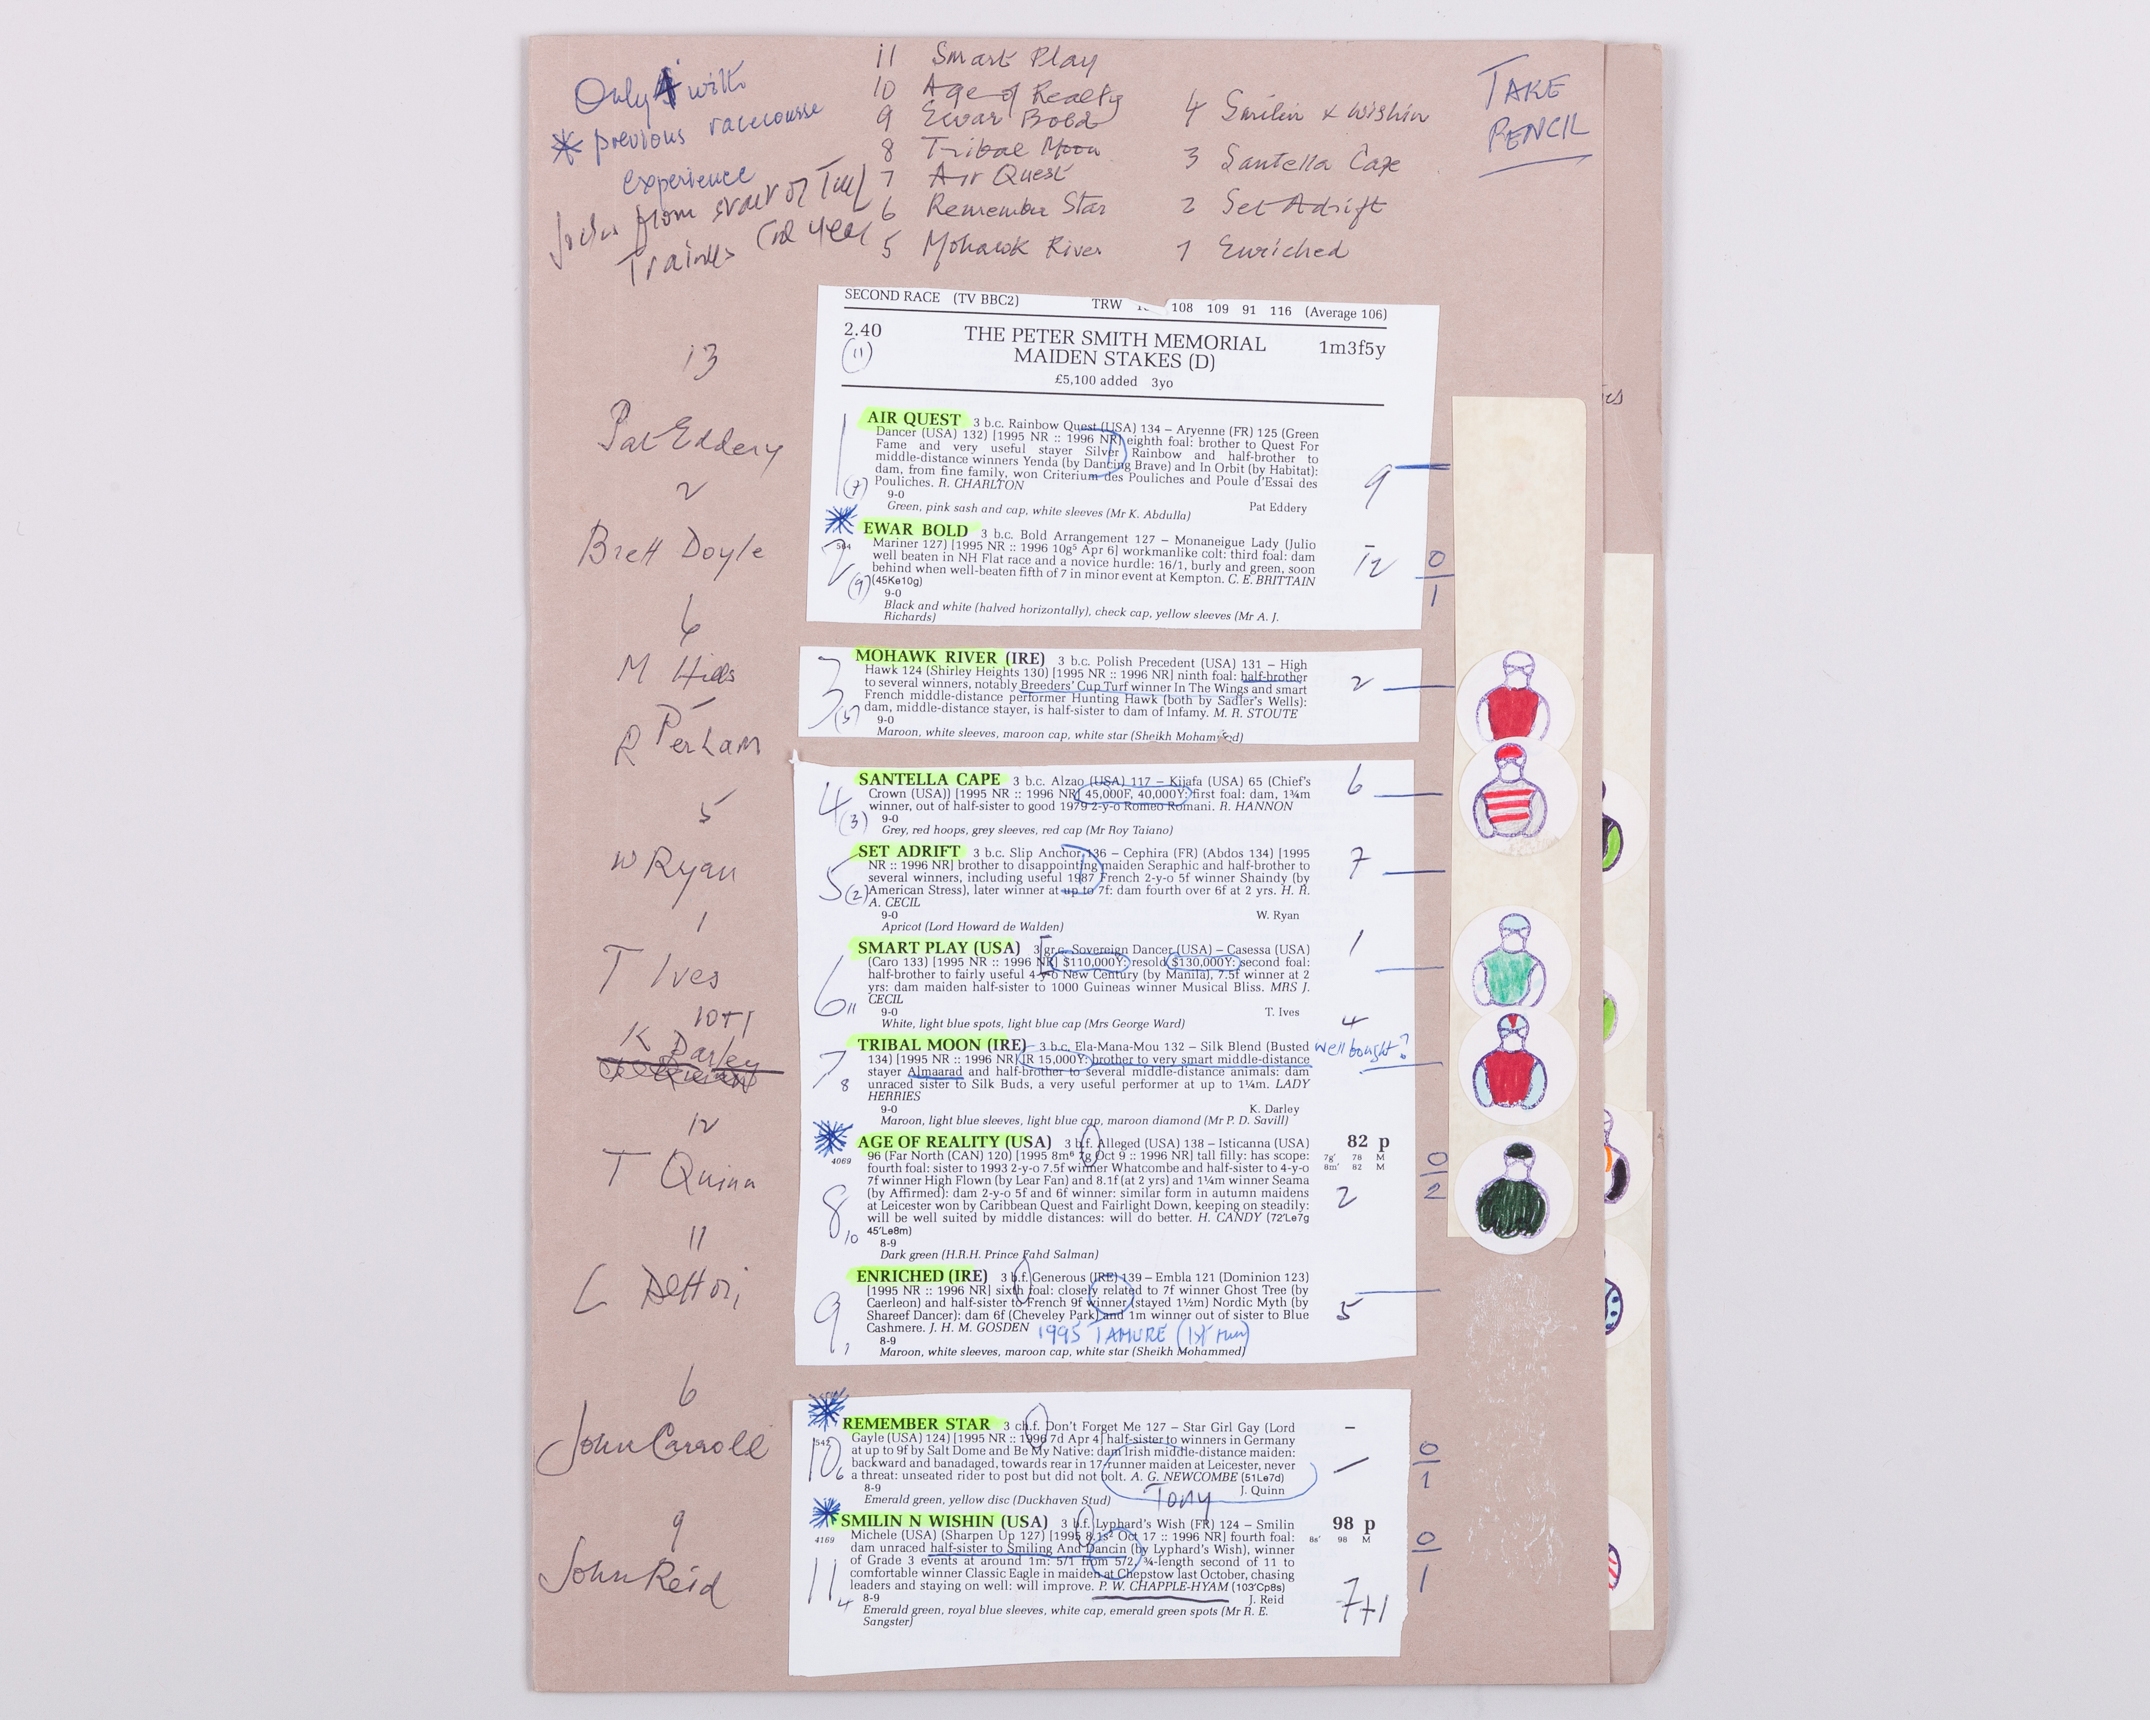 Only 4 with
* previous racecourse
experience
from start of Turf
Trainers
11 Smart Play
10 Age of Realty
9 Ewar Bold
8 Tribal Moon
7 Air Quest
6 Remember Star
5 Mohawk River
4 Smilin & Wishin
3 Santella Cape
2 Set Adrift
1 Enriched
TAKE
PENCIL
SECOND RACE (TV BBC2) TRW 108 109 91 116 (Average 106)
2.40 THE PETER SMITH MEMORIAL 1m3f5y
(11) MAIDEN STAKES (D)
£5,100 added 3yo
13
Pat Eddery
2
Brett Doyle
6
M Hills
R Perham
5
W Ryan
1
T Ives
10+1
K Darley
12
T Quinn
11
L Dettori
6
John Carroll
9
John Reid
1
(7)
AIR QUEST 3 b.c. Rainbow Quest (USA) 134 – Aryenne (FR) 125 (Green
Dancer (USA) 132) [1995 NR :: 1996 NR] eighth foal: brother to Quest For
Fame and very useful stayer Silver Rainbow and half-brother to
middle-distance winners Yenda (by Dancing Brave) and In Orbit (by Habitat):
dam, from fine family, won Criterium des Pouliches and Poule d'Essai des
Pouliches. R. CHARLTON
9-0 Pat Eddery
Green, pink sash and cap, white sleeves (Mr K. Abdulla)
9
2
564
(9)
EWAR BOLD 3 b.c. Bold Arrangement 127 – Monaneigue Lady (Julio
Mariner 127) [1995 NR :: 1996 10g⁵ Apr 6] workmanlike colt: third foal: dam
well beaten in NH Flat race and a novice hurdle: 16/1, burly and green, soon
behind when well-beaten fifth of 7 in minor event at Kempton. C. E. BRITTAIN
(45Ke10g)
9-0
Black and white (halved horizontally), check cap, yellow sleeves (Mr A. J.
Richards)
12
0
1
3
(5)
MOHAWK RIVER (IRE) 3 b.c. Polish Precedent (USA) 131 – High
Hawk 124 (Shirley Heights 130) [1995 NR :: 1996 NR] ninth foal: half-brother
to several winners, notably Breeders' Cup Turf winner In The Wings and smart
French middle-distance performer Hunting Hawk (both by Sadler's Wells):
dam, middle-distance stayer, is half-sister to dam of Infamy. M. R. STOUTE
9-0
Maroon, white sleeves, maroon cap, white star (Sheikh Mohammed)
2
4
(3)
SANTELLA CAPE 3 b.c. Alzao (USA) 117 – Kijafa (USA) 65 (Chief's
Crown (USA)) [1995 NR :: 1996 NR] 45,000F, 40,000Y: first foal: dam, 1¾m
winner, out of half-sister to good 1979 2-y-o Romeo Romani. R. HANNON
9-0
Grey, red hoops, grey sleeves, red cap (Mr Roy Taiano)
6
5
(2)
SET ADRIFT 3 b.c. Slip Anchor 136 – Cephira (FR) (Abdos 134) [1995
NR :: 1996 NR] brother to disappointing maiden Seraphic and half-brother to
several winners, including useful 1987 French 2-y-o 5f winner Shaindy (by
American Stress), later winner at up to 7f: dam fourth over 6f at 2 yrs. H. R.
A. CECIL
9-0 W. Ryan
Apricot (Lord Howard de Walden)
7
6
11
SMART PLAY (USA) 3 gr.c. Sovereign Dancer (USA) – Casessa (USA)
(Caro 133) [1995 NR :: 1996 NR] $110,000Y: resold $130,000Y: second foal:
half-brother to fairly useful 4-y-o New Century (by Manila), 7.5f winner at 2
yrs: dam maiden half-sister to 1000 Guineas winner Musical Bliss. MRS J.
CECIL
9-0 T. Ives
White, light blue spots, light blue cap (Mrs George Ward)
1
7
8
TRIBAL MOON (IRE) 3 b.c. Ela-Mana-Mou 132 – Silk Blend (Busted
134) [1995 NR :: 1996 NR] IR 15,000Y: brother to very smart middle-distance
stayer Almaarad and half-brother to several middle-distance animals: dam
unraced sister to Silk Buds, a very useful performer at up to 1¼m. LADY
HERRIES
9-0 K. Darley
Maroon, light blue sleeves, light blue cap, maroon diamond (Mr P. D. Savill)
4
well bought?
8
10
4069
AGE OF REALITY (USA) 3 b.f. Alleged (USA) 138 – Isticanna (USA) 82 p
96 (Far North (CAN) 120) [1995 8m⁶ 7g Oct 9 :: 1996 NR] tall filly: has scope: 7g' 78 M
fourth foal: sister to 1993 2-y-o 7.5f winner Whatcombe and half-sister to 4-y-o 8m' 82 M
7f winner High Flown (by Lear Fan) and 8.1f (at 2 yrs) and 1¼m winner Seama
(by Affirmed): dam 2-y-o 5f and 6f winner: similar form in autumn maidens
at Leicester won by Caribbean Quest and Fairlight Down, keeping on steadily:
will be well suited by middle distances: will do better. H. CANDY (72'Le7g
45'Le8m)
8-9
Dark green (H.R.H. Prince Fahd Salman)
2
0
2
9
1
ENRICHED (IRE) 3 b.f. Generous (IRE) 139 – Embla 121 (Dominion 123)
[1995 NR :: 1996 NR] sixth foal: closely related to 7f winner Ghost Tree (by
Caerleon) and half-sister to French 9f winner (stayed 1½m) Nordic Myth (by
Shareef Dancer): dam 6f (Cheveley Park) and 1m winner out of sister to Blue
Cashmere. J. H. M. GOSDEN 1995 TAMURE (1st run)
8-9
Maroon, white sleeves, maroon cap, white star (Sheikh Mohammed)
5
10
6
542
REMEMBER STAR 3 ch.f. Don't Forget Me 127 – Star Girl Gay (Lord
Gayle (USA) 124) [1995 NR :: 1996 7d Apr 4] half-sister to winners in Germany
at up to 9f by Salt Dome and Be My Native: dam Irish middle-distance maiden:
backward and banadaged, towards rear in 17-runner maiden at Leicester, never
a threat: unseated rider to post but did not bolt. A. G. NEWCOMBE (51Le7d)
8-9 J. Quinn
Emerald green, yellow disc (Duckhaven Stud) Tony
–
0
1
11
4
4169
SMILIN N WISHIN (USA) 3 b.f. Lyphard's Wish (FR) 124 – Smilin 98 p
Michele (USA) (Sharpen Up 127) [1995 8.1s² Oct 17 :: 1996 NR] fourth foal: 8s' 98 M
dam unraced half-sister to Smiling And Dancin (by Lyphard's Wish), winner
of Grade 3 events at around 1m: 5/1 from 5/2, ¾-length second of 11 to
comfortable winner Classic Eagle in maiden at Chepstow last October, chasing
leaders and staying on well: will improve. P. W. CHAPPLE-HYAM (103'Cp8s)
8-9 J. Reid
Emerald green, royal blue sleeves, white cap, emerald green spots (Mr R. E.
Sangster)
7+1
0
1